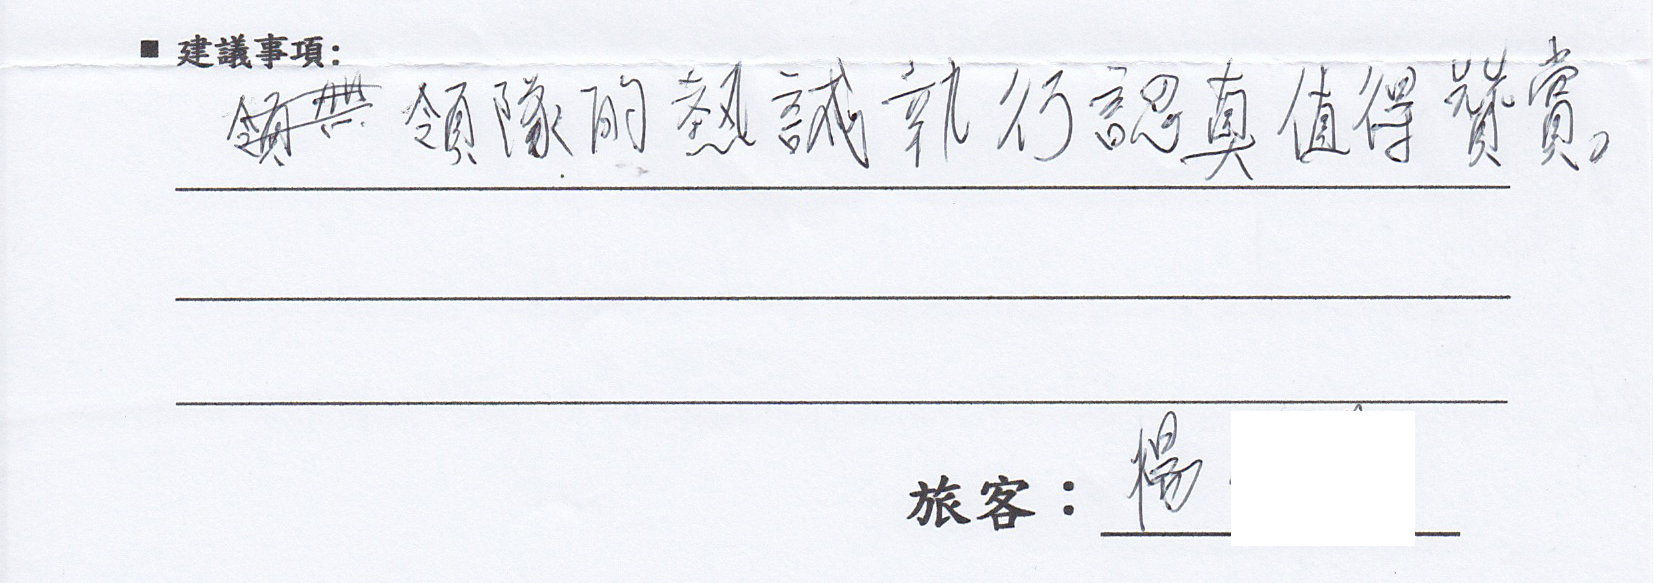 ■ 建議事項：
領隊的熱誠執行認真值得贊賞。
旅客：楊